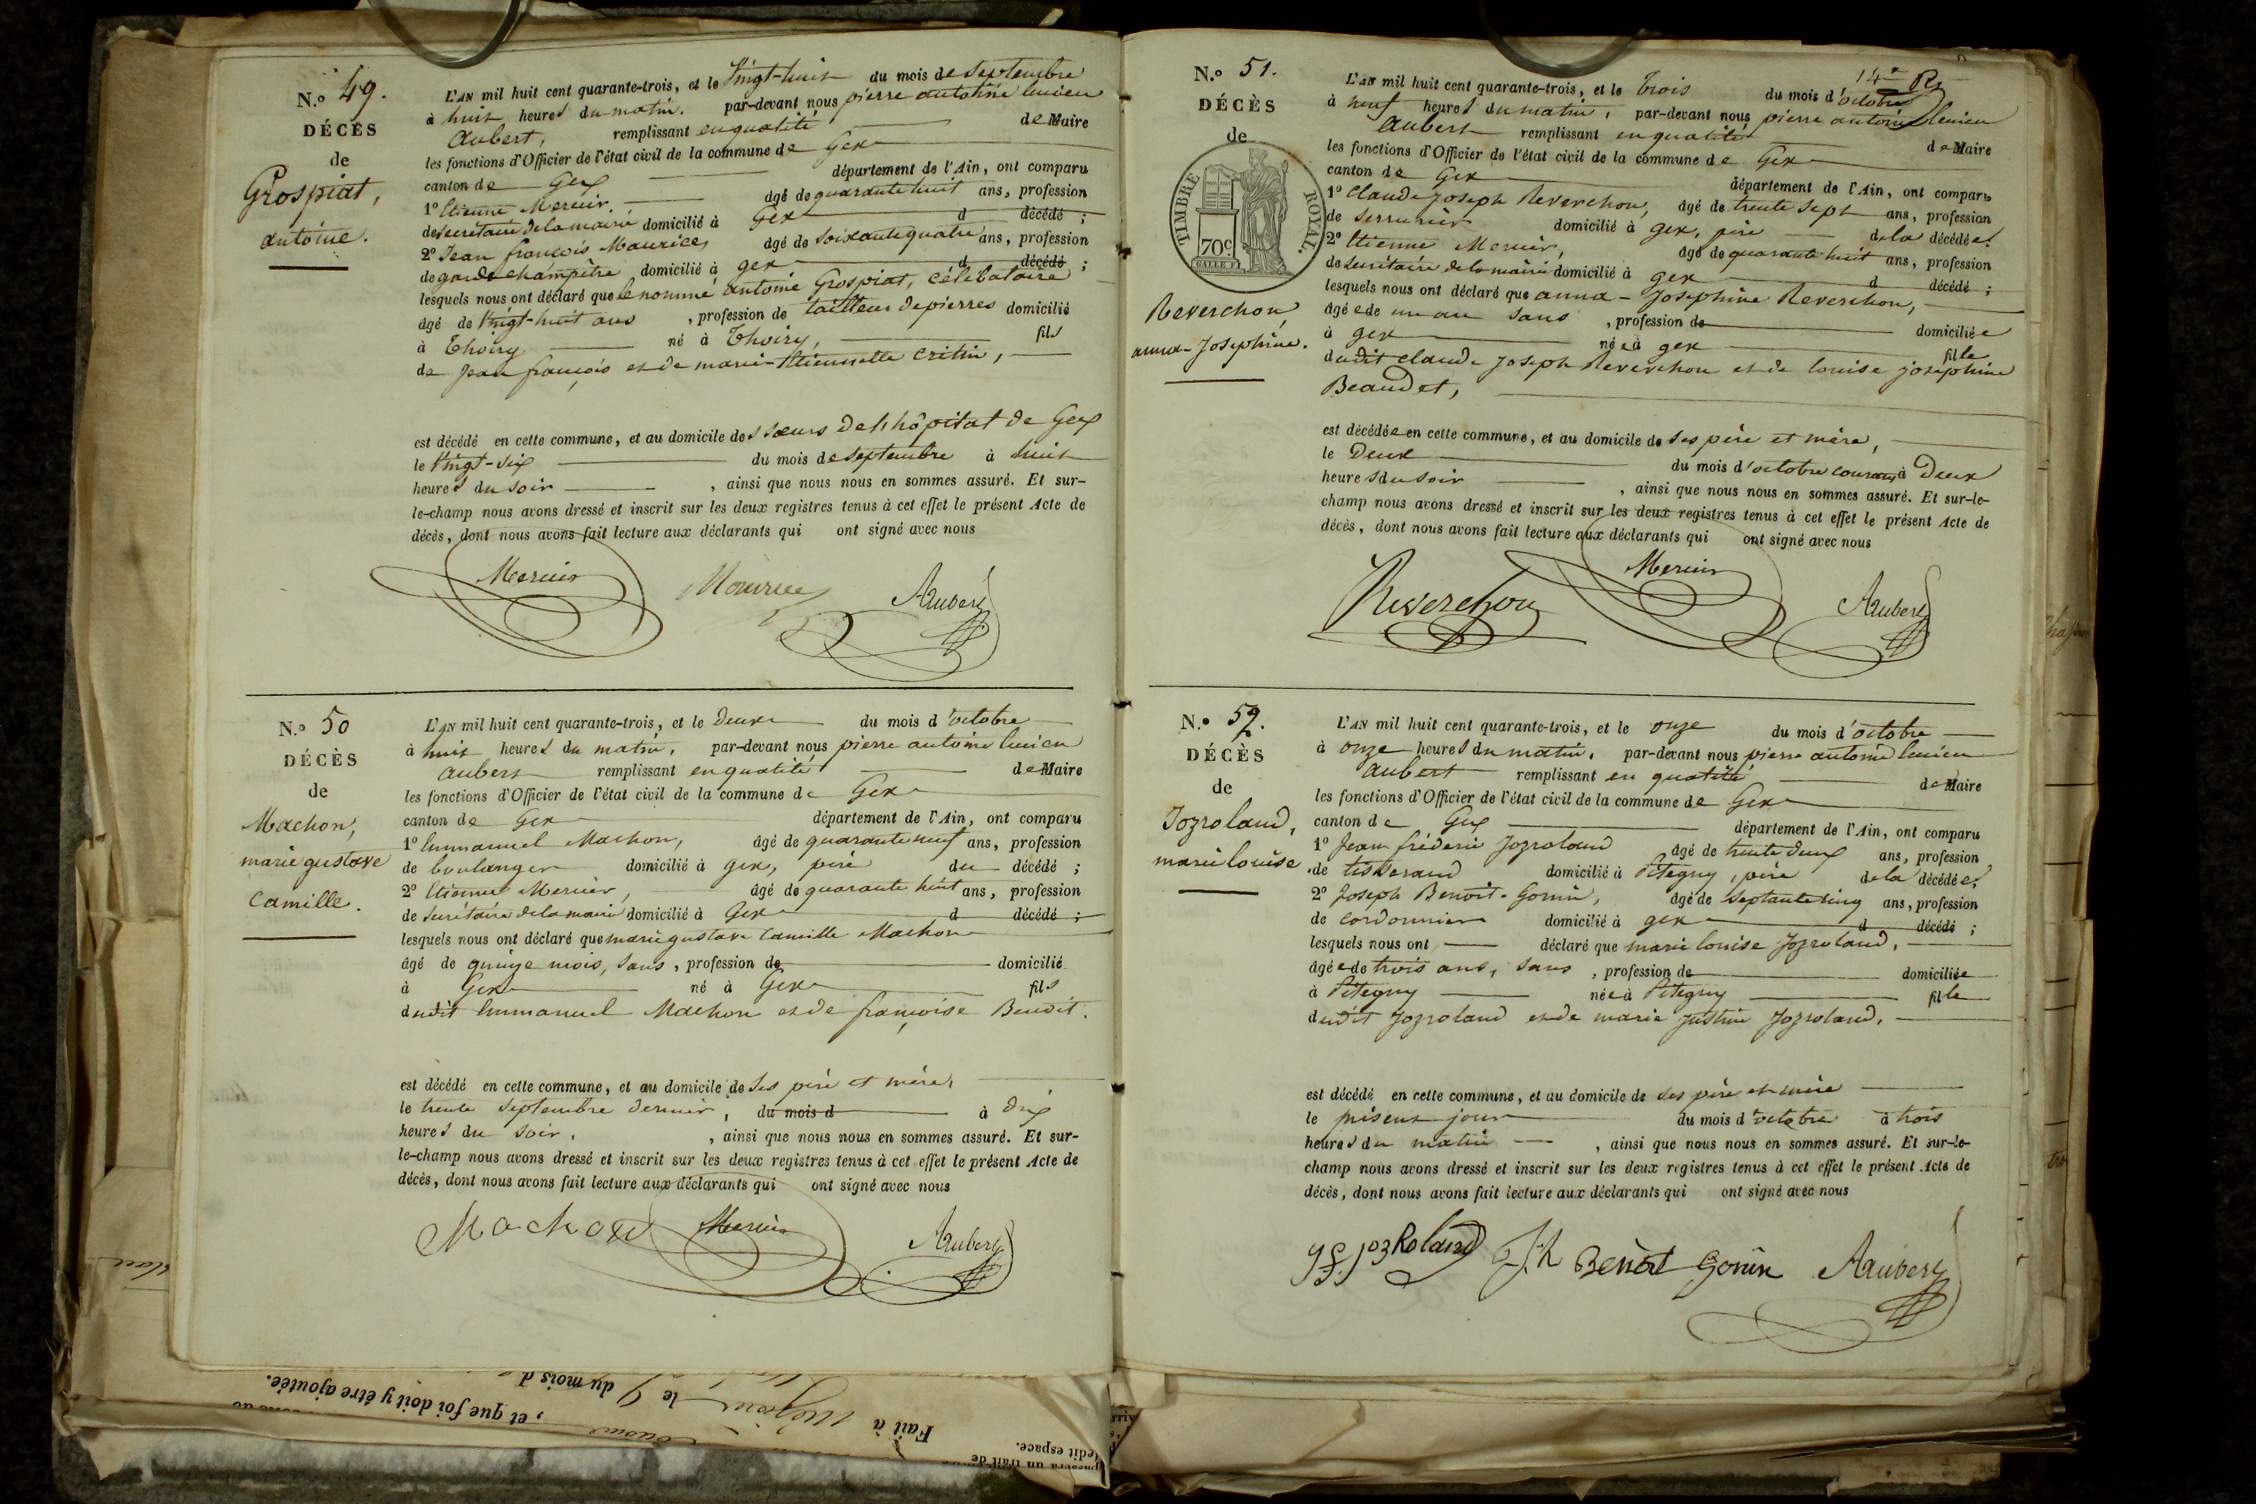 N.o 49.
DÉCÈS
de
Grospiat,
antoine.
L'AN mil huit cent quarante-trois, et le Vingt-huit du mois de septembre
à huit heures du matin. par-devant nous pierre antoine lucien
Aubert, remplissant en qualité de Maire
les fonctions d'Officier de l'état civil de la commune de Gex
canton de Gex département de l'Ain, ont comparu
1o Etienne Mercier, âgé de quarante huit ans, profession
de secrétaire de la mairie domicilié à Gex d décédé ;
2o Jean françois Maurice, âgé de soixante quatre ans, profession
de garde champêtre domicilié à gex d décédé ;
lesquels nous ont déclaré que le nommé antoine Grospiat, célibataire
âgé de Vingt-huit ans , profession de tailleur de pierres domicilié
à Thoiry né à Thoiry, fils
de Jean françois et de marie-Etiennette critin,
est décédé en cette commune, et au domicile des sœurs de l'hôpital de Gex
le Vingt-six du mois de septembre à huit
heures du soir , ainsi que nous nous en sommes assuré. Et sur-
le-champ nous avons dressé et inscrit sur les deux registres tenus à cet effet le présent Acte de
décès, dont nous avons fait lecture aux déclarants qui ont signé avec nous
Mercier Maurice Aubert
N.o 50
DÉCÈS
de
Machon,
marie gustave
Camille.
L'AN mil huit cent quarante-trois, et le deux du mois d'octobre
à huit heures du matin, par-devant nous pierre antoine lucien
aubert remplissant en qualité de Maire
les fonctions d'Officier de l'état civil de la commune de Gex
canton de Gex département de l'Ain, ont comparu
1o Emmanuel Machon, âgé de quarante neuf ans, profession
de boulanger domicilié à gex, père du décédé ;
2o Etienne Mercier, âgé de quarante huit ans, profession
de secrétaire de la mairie domicilié à Gex d décédé ;
lesquels nous ont déclaré que marie gustave Camille Machon
âgé de quinze mois, sans , profession de domicilié
à Gex né à Gex fils
dudit Emmanuel Machon et de françoise Benoit.
est décédé en cette commune, et au domicile de ses père et mère,
le trente septembre dernier, du mois d à dix
heures du soir. , ainsi que nous nous en sommes assuré. Et sur-
le-champ nous avons dressé et inscrit sur les deux registres tenus à cet effet le présent Acte de
décès, dont nous avons fait lecture aux déclarants qui ont signé avec nous
Machon Mercier Aubert
14e
N.o 51.
DÉCÈS
de
TIMBRE ROYAL.
70c
Reverchon,
anna-Josephine.
L'AN mil huit cent quarante-trois, et le trois du mois d'octobre
à neuf heures du matin, par-devant nous pierre antoine lucien
aubert remplissant en qualité de Maire
les fonctions d'Officier de l'état civil de la commune de Gex
canton de Gex département de l'Ain, ont comparu
1o Claude Joseph Reverchon, âgé de trente sept ans, profession
de serrurier domicilié à gex, père de la décédée;
2o Etienne Mercier, âgé de quarante huit ans, profession
de secrétaire de la mairie domicilié à gex d décédé ;
lesquels nous ont déclaré que anna-Josephine Reverchon,
âgée de un an sans , profession de domiciliée
à gex née à gex fille
dudit claude Joseph Reverchon et de louise joséphine
Beaudet,
est décédée en cette commune, et au domicile de ses père et mère,
le Deux du mois d'octobre courant à Deux
heures du soir , ainsi que nous nous en sommes assuré. Et sur-le-
champ nous avons dressé et inscrit sur les deux registres tenus à cet effet le présent Acte de
décès, dont nous avons fait lecture aux déclarants qui ont signé avec nous
Reverchon Mercier Aubert
N.o 52.
DÉCÈS
de
Jozroland,
marie louise
L'AN mil huit cent quarante-trois, et le onze du mois d'octobre
à onze heures du matin, par-devant nous pierre antoine lucien
aubert remplissant en qualité de Maire
les fonctions d'Officier de l'état civil de la commune de Gex
canton de Gex département de l'Ain, ont comparu
1o Jean fréderic Jozroland âgé de trente deux ans, profession
de tisserand domicilié à Pitegny, père de la décédée;
2o Joseph Benoit-Gonin, âgé de septante cinq ans, profession
de cordonnier domicilié à gex d décédé ;
lesquels nous ont déclaré que marie louise Jozroland,
âgée de trois ans, sans , profession de domiciliée
à Pitegny née à Pitegny fille
dudit Jozroland et de marie Justine Jozroland,
est décédé en cette commune, et au domicile de ses père et mère
le présent jour du mois d'octobre à trois
heures du matin , ainsi que nous nous en sommes assuré. Et sur-le-
champ nous avons dressé et inscrit sur les deux registres tenus à cet effet le présent Acte de
décès, dont nous avons fait lecture aux déclarants qui ont signé avec nous
Jf JozRoland Jh Benoit Gonin Aubert
, et que foi doit y être ajoutée.
Fait à le du mois d
ledit espace.